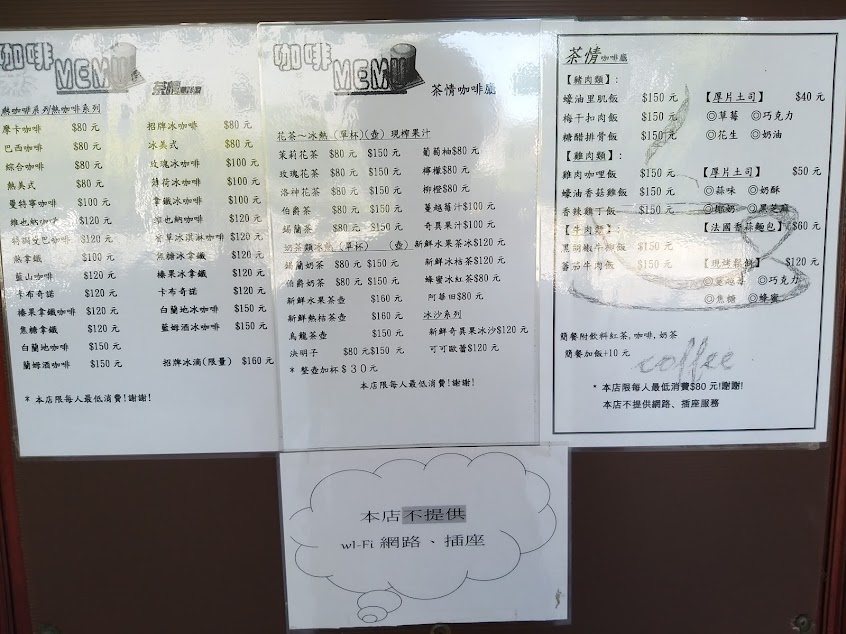 咖啡 MEMU
熱咖啡系列
摩卡咖啡 $80 元
巴西咖啡 $80 元
綜合咖啡 $80 元
熱美式 $80 元
曼特寧咖啡 $100 元
維也納咖啡 $120 元
特調艾巴咖啡 $120 元
熱拿鐵 $100 元
藍山咖啡 $120 元
卡布奇諾 $120 元
榛果拿鐵咖啡 $120 元
焦糖拿鐵 $120 元
白蘭地咖啡 $150 元
蘭姆酒咖啡 $150 元
招牌冰咖啡 $80 元
冰美式 $80 元
玫瑰冰咖啡 $100 元
薄荷冰咖啡 $100 元
拿鐵冰咖啡 $100 元
維也納冰咖啡 $120 元
香草冰淇淋咖啡 $120 元
焦糖冰拿鐵 $120 元
榛果冰拿鐵 $120 元
卡布奇諾 $120 元
白蘭地冰咖啡 $150 元
藍姆酒冰咖啡 $150 元
招牌冰滴(限量) $160 元
* 本店限每人最低消費!謝謝!
咖啡 MEMU
茶情咖啡廳
花茶~冰熱 (單杯)(壺) 現榨果汁
茉莉花茶 $80 元 $150 元 葡萄柚$80 元
玫瑰花茶 $80 元 $150 元 檸檬$80 元
洛神花茶 $80 元 $150 元 柳橙$80 元
伯爵茶 $80 元 $150 元 蔓越莓汁$100 元
錫蘭茶 $80 元 $150 元 奇異果汁$100 元
奶茶類冰熱 (單杯) (壺) 新鮮水果茶冰$120 元
錫蘭奶茶 $80 元 $150 元 新鮮冰桔茶$120 元
伯爵奶茶 $80 元 $150 元 蜂蜜冰紅茶$80 元
新鮮水果茶壺 $160 元 阿華田$80 元
新鮮熱桔茶壺 $160 元 冰沙系列
烏龍茶壺 $150 元 新鮮奇異果冰沙$120 元
決明子 $80 元$150 元 可可歐蕾$120 元
* 整壺加杯$30元
本店限每人最低消費!謝謝!
茶情咖啡廳
【豬肉類】:
蠔油里肌飯 $150 元
梅干扣肉飯 $150 元
糖醋排骨飯 $150 元
【雞肉類】:
雞肉咖哩飯 $150 元
蠔油香菇雞飯 $150 元
香辣雞丁飯 $150 元
【牛肉類】:
黑胡椒牛柳飯 $150 元
蕃茄牛肉飯 $150 元
【厚片土司】 $40 元
◎草莓 ◎巧克力
◎花生 ◎奶油
【厚片土司】 $50 元
◎蒜味 ◎奶酥
◎椰奶 ◎黑芝麻
【法國香蒜麵包】$60 元
【現烤鬆餅】 $120 元
◎蔓越莓 ◎巧克力
◎焦糖 ◎蜂蜜
簡餐附飲料紅茶,咖啡,奶茶
簡餐加飯+10 元
coffee
* 本店限每人最低消費$80 元!謝謝!
本店不提供網路、插座服務
本店不提供
wI-Fi 網路、插座